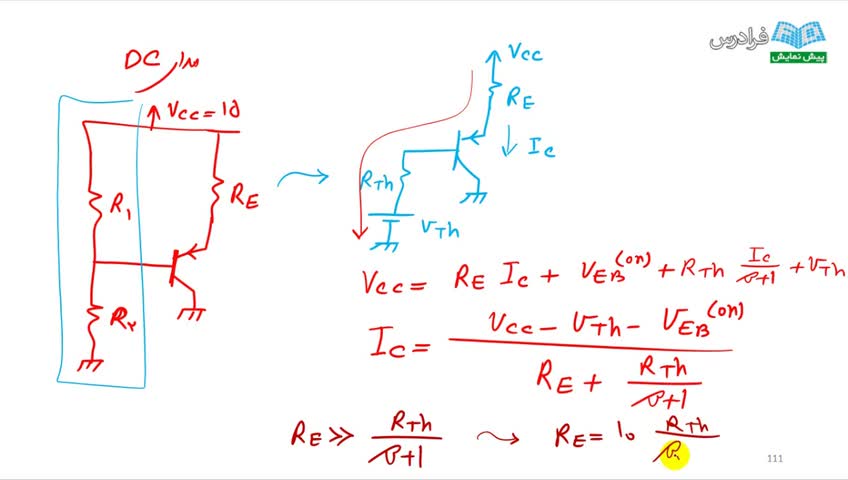 فرادرس
پیش نمایش
DC مدار
VCC = 10
R1
RE
R۲
VCC
RE
IC
RTh
VTh
VCC = RE IC + VEB(on) + RTh IC/β+1 + VTh
IC = VCC - VTh - VEB(on) / RE + RTh/β+1
RE >> RTh/β+1 ⇝ RE = 10 RTh/β
111